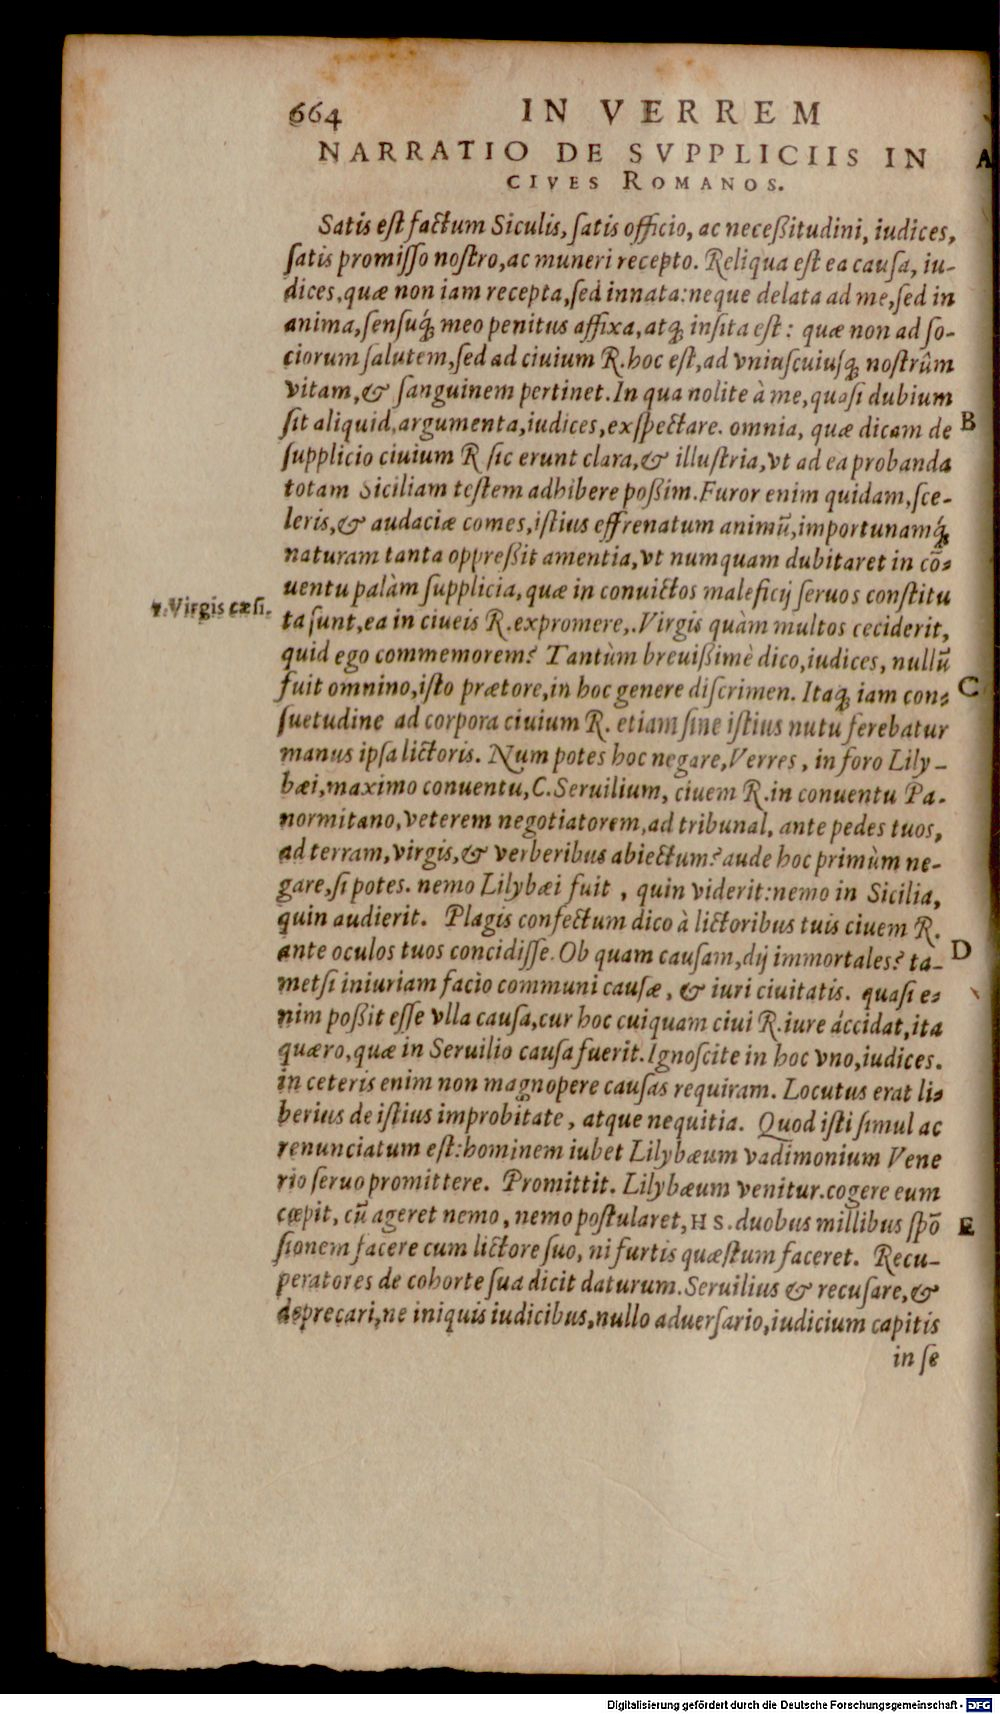 664 IN VERREM
NARRATIO DE SVPPLICIIS IN A
CIVES ROMANOS.
Satis est factum Siculis, ſatis officio, ac neceßitudini, iudices,
ſatis promiſſo noſtro, ac muneri recepto. Reliqua eſt ea cauſa, iu-
dices, quæ non iam recepta, ſed innata: neque delata ad me, ſed in
anima, ſenſuq́; meo penitus affixa, atq; inſita eſt: quæ non ad ſo-
ciorum ſalutem, ſed ad ciuium R. hoc eſt, ad vniuſcuiuſq; noſtrûm
vitam, & ſanguinem pertinet. In qua nolite à me, quaſi dubium
ſit aliquid, argumenta, iudices, exſpectare. omnia, quæ dicam de B
ſupplicio ciuium R ſic erunt clara, & illuſtria, vt ad ea probanda
totam Siciliam teſtem adhibere poßim. Furor enim quidam, ſce-
leris, & audaciæ comes, iſtius effrenatum animũ, importunamq́;
naturam tanta oppreßit amentia, vt numquam dubitaret in cō-
uentu palàm ſupplicia, quæ in conuictos maleficij ſeruos conſtitu
1. Virgis cæſi. ta ſunt, ea in ciueis R. expromere,. Virgis quàm multos ceciderit,
quid ego commemorem? Tantùm breuißimè dico, iudices, nullũ
fuit omnino, iſto prætore, in hoc genere diſcrimen. Itaq; iam con- C
ſuetudine ad corpora ciuium R. etiam ſine iſtius nutu ferebatur
manus ipſa lictoris. Num potes hoc negare, Verres, in foro Lily-
bæi, maximo conuentu, C. Seruilium, ciuem R. in conuentu Pa-
normitano, veterem negotiatorem, ad tribunal, ante pedes tuos,
ad terram, virgis, & verberibus abiectum? aude hoc primùm ne-
gare, ſi potes. nemo Lilybæi fuit, quin viderit: nemo in Sicilia,
quin audierit. Plagis confectum dico à lictoribus tuis ciuem R.
ante oculos tuos concidiſſe. Ob quam cauſam, dij immortales? ta- D
metſi iniuriam facio communi cauſæ, & iuri ciuitatis. quaſi e-
nim poßit eſſe vlla cauſa, cur hoc cuiquam ciui R. iure áccidat, ita
quæro, quæ in Seruilio cauſa fuerit. Ignoſcite in hoc vno, iudices.
in ceteris enim non magnopere cauſas requiram. Locutus erat li-
berius de iſtius improbitate, atque nequitia. Quod iſti ſimul ac
renunciatum eſt: hominem iubet Lilybæum vadimonium Vene
rio ſeruo promittere. Promittit. Lilybæum venitur. cogere eum
cœpit, cũ ageret nemo, nemo poſtularet, HS. duobus millibus ſpō E
ſionem facere cum lictore ſuo, ni furtis quæſtum faceret. Recu-
peratores de cohorte ſua dicit daturum. Seruilius & recuſare, &
deprecari, ne iniquis iudicibus, nullo aduerſario, iudicium capitis
in ſe
Digitalisierung gefördert durch die Deutsche Forschungsgemeinschaft - DFG